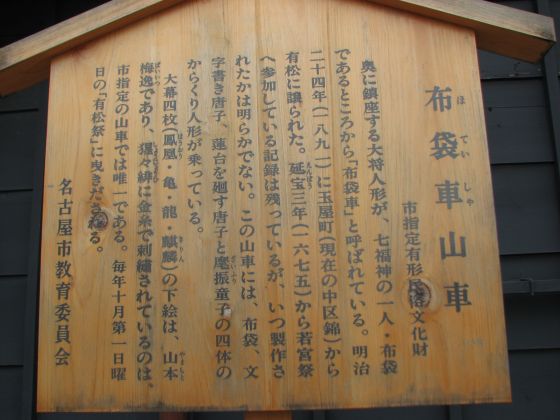 布袋車山車
ほていしゃ
市指定有形民俗文化財
奥に鎮座する大将人形が、七福神の一人・布袋
であるところから「布袋車」と呼ばれている。明治
二十四年(一八九一)に玉屋町(現在の中区錦)から
有松に譲られた。延宝三年(一六七五)から若宮祭
えんぽう
へ参加している記録は残っているが、いつ製作さ
れたかは明らかでない。この山車には、布袋、文
字書き唐子、蓮台を廻す唐子と麾振童子の四体の
ざいふり
からくり人形が乗っている。
大幕四枚(鳳凰・亀・龍・麒麟)の下絵は、山本
ほうおう
きりん
やまもと
梅逸であり、猩々緋に金糸で刺繍されているのは、
ばいいつ
しょうじょうひ
市指定の山車では唯一である。毎年十月第一日曜
日の「有松祭」に曳きだされる。
名古屋市教育委員会